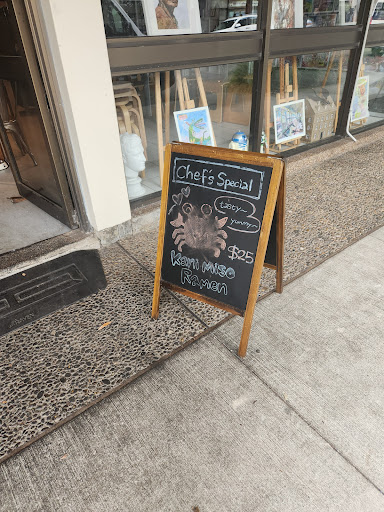 Chef's Special
tasty~
yummy~
$25
Kani Miso
Ramen